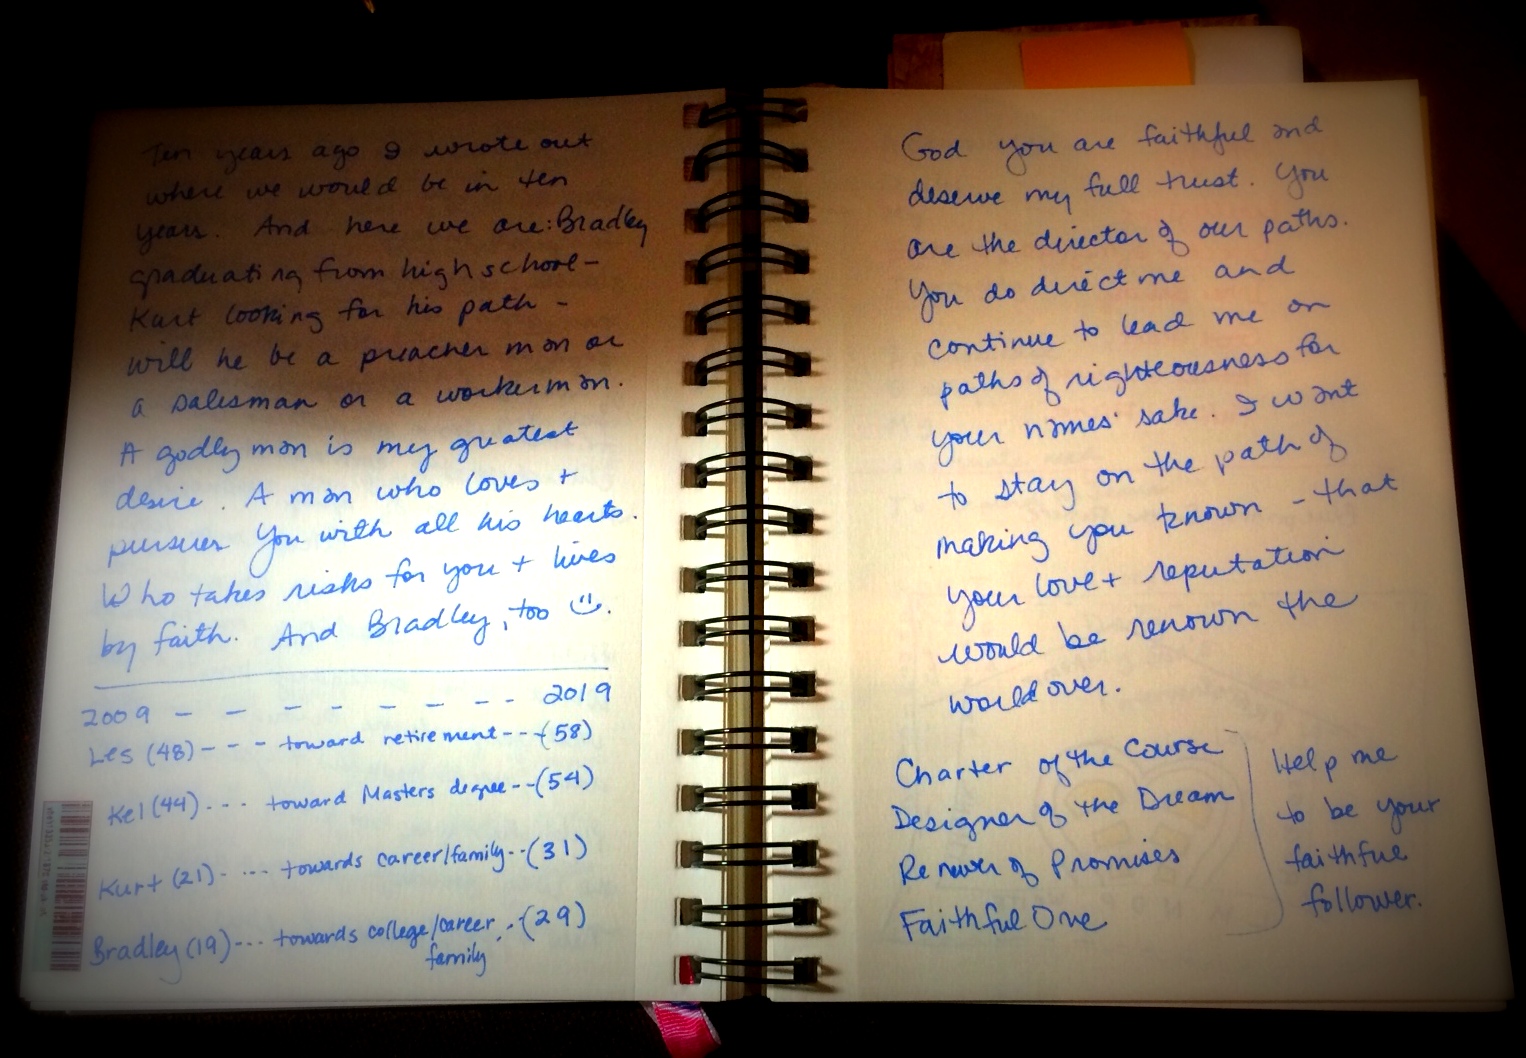 Ten years ago I wrote out
where we would be in ten
years. And here we are: Bradley
graduating from high school -
Kurt looking for his path -
will he be a preacher man or
a salesman or a workerman.
A godley man is my greatest
desire. A man who loves +
pursues You with all his hearts.
Who takes risks for you + lives
by faith. And Bradley, too
2009 - - - - - - - - 2019
Les (48) - - - toward retirement - - - (58)
Kel (44) . . . toward Masters degree - - (54)
Kurt (21) . ... towards career/family - - (31)
Bradley (19) - - ... towards college/career . . - (29)
family
God you are faithful and
deserve my full trust. You
are the director of our paths.
You do direct me and
continue to lead me on
paths of righteousness for
your names' sake. I want
to stay on the path of
making you known - that
your love + reputation
would be renown the
world over.
Charter of the Course
Designer of the Dream
Renewer of Promises
Faithful One
Help me
to be your
faithful
follower.